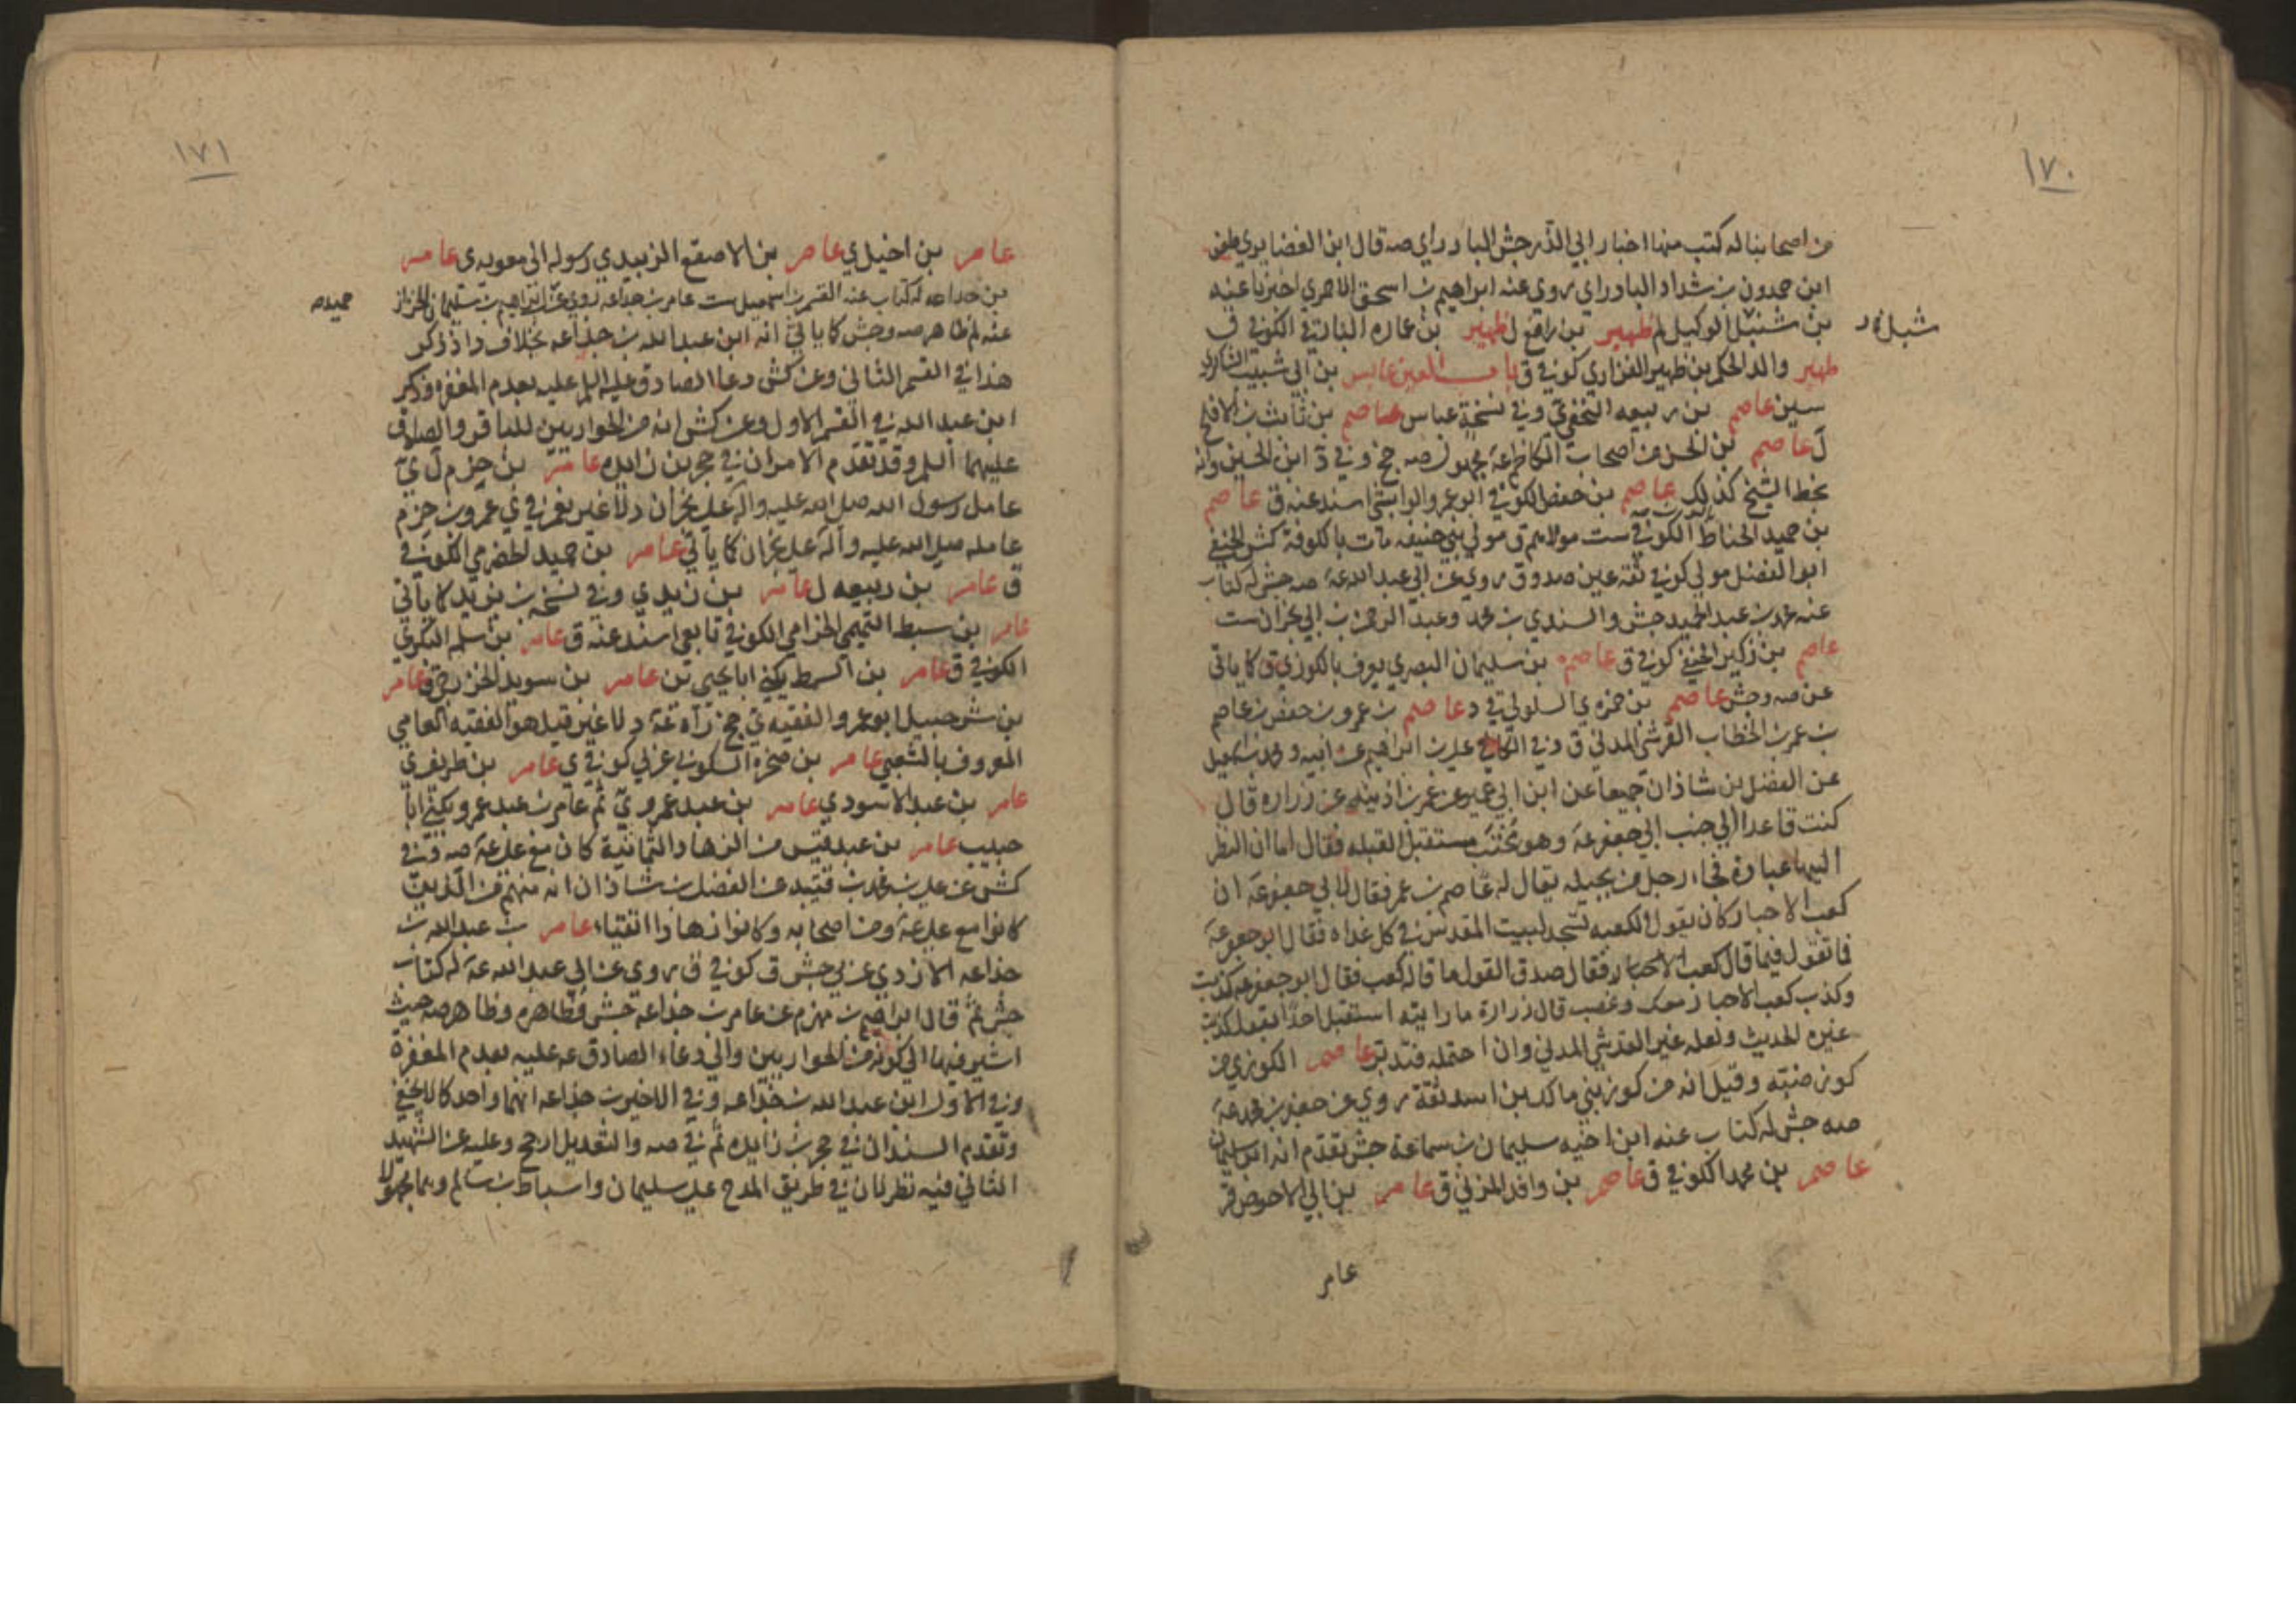 ١٧٠
من اصحابنا له كتب منها اخبار ابي الذر جش البادراي صه قال ابن الغضايري
ابن حمدون بن شداد الباوراي روى عنه ابراهيم بن اسحق الاحمري اخبرنا عنه
بن شنبل الوكيل لم ظهير بن رافع ل ظهير بن عماره الكوفي ق
ظهير والد الحكم بن ظهير الفزاري كوفي ق باب العين عابس بن ابي شبيب الشاكري
سين عاصم بن ربيعه النخعي وفي نسخة عباس عاصم بن ثابت بن الافلح
ل عاصم بن الحسن من اصحاب الكاظم عه مجهول صه جخ وفي د ابن الحسين وانه
بخط الشيخ كذلك عاصم بن حفص الكوفي ابو عمرو اسند عنه ق عاصم
بن حميد الحناط الكوفي ست مولاهم ق مولى بني حنيفه مات بالكوفة كش الحنفي
ابو الفضل مولى كوفي ثقة عين صدوق روى عن ابي عبد الله عه صه جش له كتاب
عنه محمد بن عبد الحميد جش والسندي بن محمد وعبد الرحمن بن ابي نجران ست
عاصم بن زكير الحنفي كوفي ق عاصم بن سليمان البصري يعرف بالكوزي ق كما ياتي
عن صه وجش عاصم بن ضمره ي السلولي د عاصم بن عمرو بن حفص بن عاصم
بن عمر بن الخطاب القرشي المدني ق وفي الكافي علي بن ابراهيم عن ابيه ومحمد بن اسمعيل
عن الفضل بن شاذان جميعا عن ابن ابي عمير عن عمر بن اذينه عن زراره قال
كنت قاعدا الى جنب ابي جعفر عه وهو محتب مستقبل القبله فقال اما ان النظر
اليها عبادة فجاء رجل من بجيله يقال له عاصم بن عمر فقال لابي جعفر عه ان
كعب الاحبار كان يقول ان الكعبه تسجد لبيت المقدس في كل غداه فقال ابو جعفر عه
فما تقول فيما قال كعب الاحبار فقال صدق القول ما قال كعب فقال ابو جعفر عه كذبت
وكذب كعب الاحبار معك وغضب قال زرارة ما رايته استقبل احدا بقول كذبت
غيره الحديث ولعله غير القرشي المدني وان احتمله فتدبر عاصم الكوزي من
كوز ضبته وقيل انه من كوز بني مالك بن اسد ثقة روى عن جعفر بن محمد عه
صه جش له كتاب عنه ابن اخيه سليمان بن سماعة جش تقدم انه ابن سليمان
عاصم بن محمد الكوفي ق عاصم بن وافد المزني ق عامر بن ابي الاحوص قر
عامر
١٧١
عامر بن اخيل ي عامر بن الاصقع الزبيدي رسوله الى معويه ي عامر
بن جداعه له كتاب عنه القسم بن اسمعيل ست عامر بن جداعه روى عنه ابراهيم بن سليمان الخزاز
عنه لم ظاهر صه وجش كما ياتي انه ابن عبد الله بن جذاعه بخلاف د اذ ذكر
هذا في القسم الثاني وعن كش دعا الصادق عليه السلم عليه بعدم المغفره وذكر
ابن عبد الله في القسم الاول وعن كش انه من الحواريين للباقر والصادق
عليهما السلم وقد تقدم الامران في حجر بن زايده عامر بن حزم ل ي
عامل رسول الله صلى الله عليه وآله على نجران د لا غير نعم في ي عمرو بن حزم
عامله صلى الله عليه وآله على نجران كما ياتي عامر بن حميد الحضرمي الكوفي
ق عامر بن ربيعه ل عامر بن زيد ي وفي نسخه بن يزيد كما ياتي
عامر بن سبط التميمي الحزامي الكوفي تابعي اسند عنه ق عامر بن سلم البكوي
الكوفي ق عامر بن السمط يكنى ابا يحيى ين عامر بن سويد ق عامر
بن شرحبيل ابو عمرو الفقيه ي جخ رآه عه د لا غير قيل هو الفقيه العامي
المعروف بالشعبي عامر بن صخره السكوني عربي كوفي ي عامر بن طريف ي
عامر بن عبد الاسود ي عامر بن عبد عمرو ي ثم عامر بن عبد عمرو يكنى ابا
حبيب عامر بن عبد قيس من الزهاد الثمانية كان مع علي عه صه وفي
كش عن علي بن محمد بن قتيبه عن الفضل بن شاذان انه منهم من الذين
كانوا مع علي عه ومن اصحابه وكانوا زهادا اتقياء عامر بن عبد الله بن
جذاعه الازدي عربي جش ق كوفي ق روى عن ابي عبد الله عه له كتاب
جش ثم قال ابراهيم بن مهزم عن عامر بن جذاعه جش فظاهره وظاهر صه حيث
اشير فيها الى كونه من الحواريين والى دعاء الصادق عه عليه بعدم المغفرة
وفي الاول ابن عبد الله بن جذاعه وفي الاخير بن جذاعه انهما واحد كما لا يخفى
وتقدم السندان في حجر بن زايده ثم في صه والتعديل ارجح وعليه عن الشهيد
الثاني فيه نظر لان في طريق المدح علي بن سليمان واسباط بن سالم وهما مجهولا